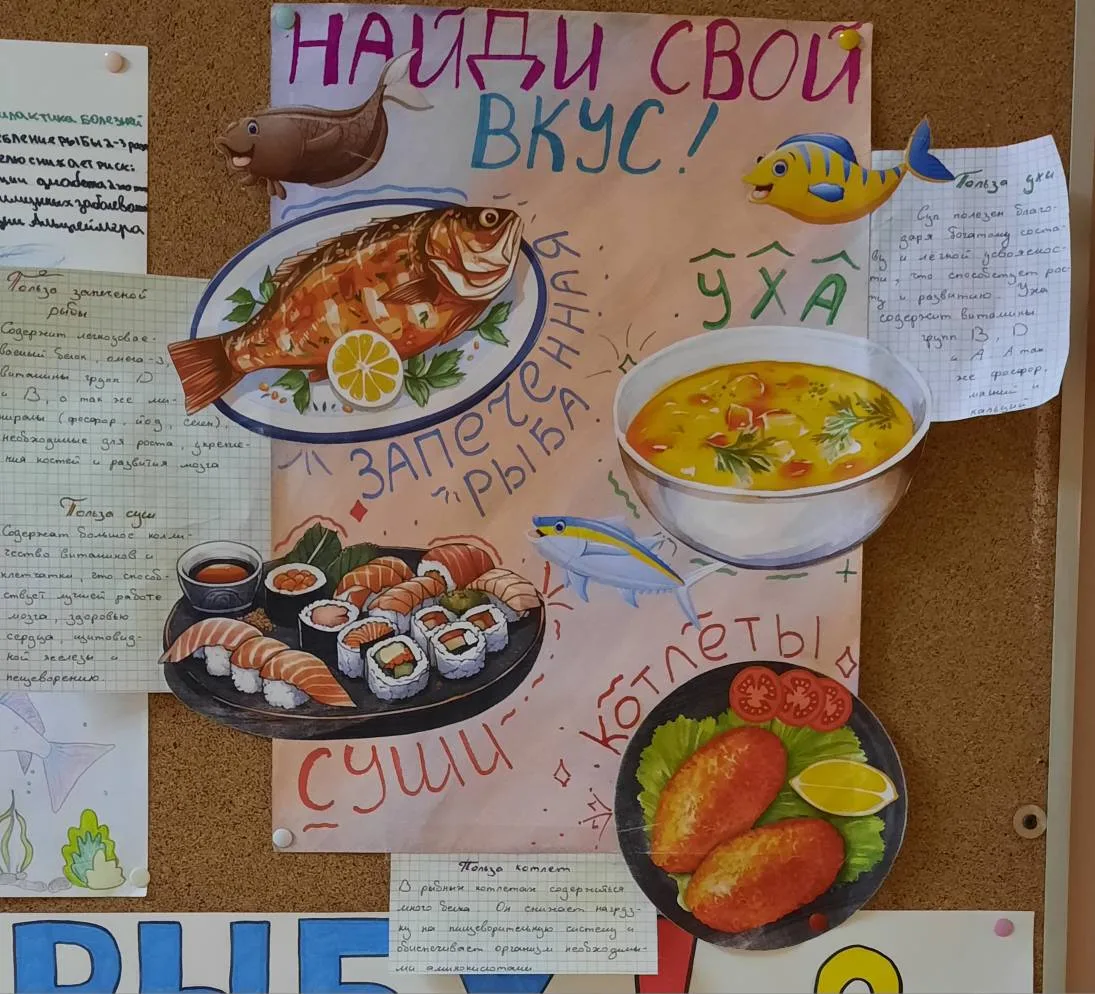 НАЙДИ СВОЙ
ВКУС!
илактика болезней
ебления рыбы 2-3 раза
елю снижает риск:
ции диабета 2го
Польза запеченой
рыбы
Содержит легкоусваe-
ваемый белок, омега-3,
витамины групп D
и B, а так же ми-
нералы (фосфор, йод, селен),
необходимые для роста, укрепле-
ния костей и развития мозга
Польза суши
Содержат большое коли-
чество витаминов и
клетчатки, что способ-
ствует лучшей работе
мозга, здоровью
сердца, щитовид-
ной железы и
пещеворению.
ЗАПЕЧЕННАЯ
РЫБА
УХА
Польза ухи
Суп полезен благо-
даря богатому соста-
ву и легкой усвояемос-
ти, что способствует рос-
ту и развитию. Уха
содержит витамины
групп B, D
и А. А так
же фосфор,
магний и
кальций
СУШИ
КОТЛЕТЫ
Польза котлет
В рыбных котлетах содержиться
много белка. Он снижает нагруз-
ку на пищеворительную систему и
обиспечивает организм необходимы-
ми аминокислотами
РЫБ